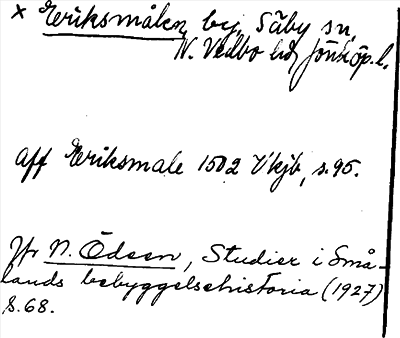 × Eriksmålen, by, Säby sn,
N. Vedbo hd, Jönköp. l.
aff Eriksmale 1502 Vkjb, s. 95.
Jfr N. Ödeen, Studier i Små-
lands bebyggelsehistoria (1927)
S. 68.